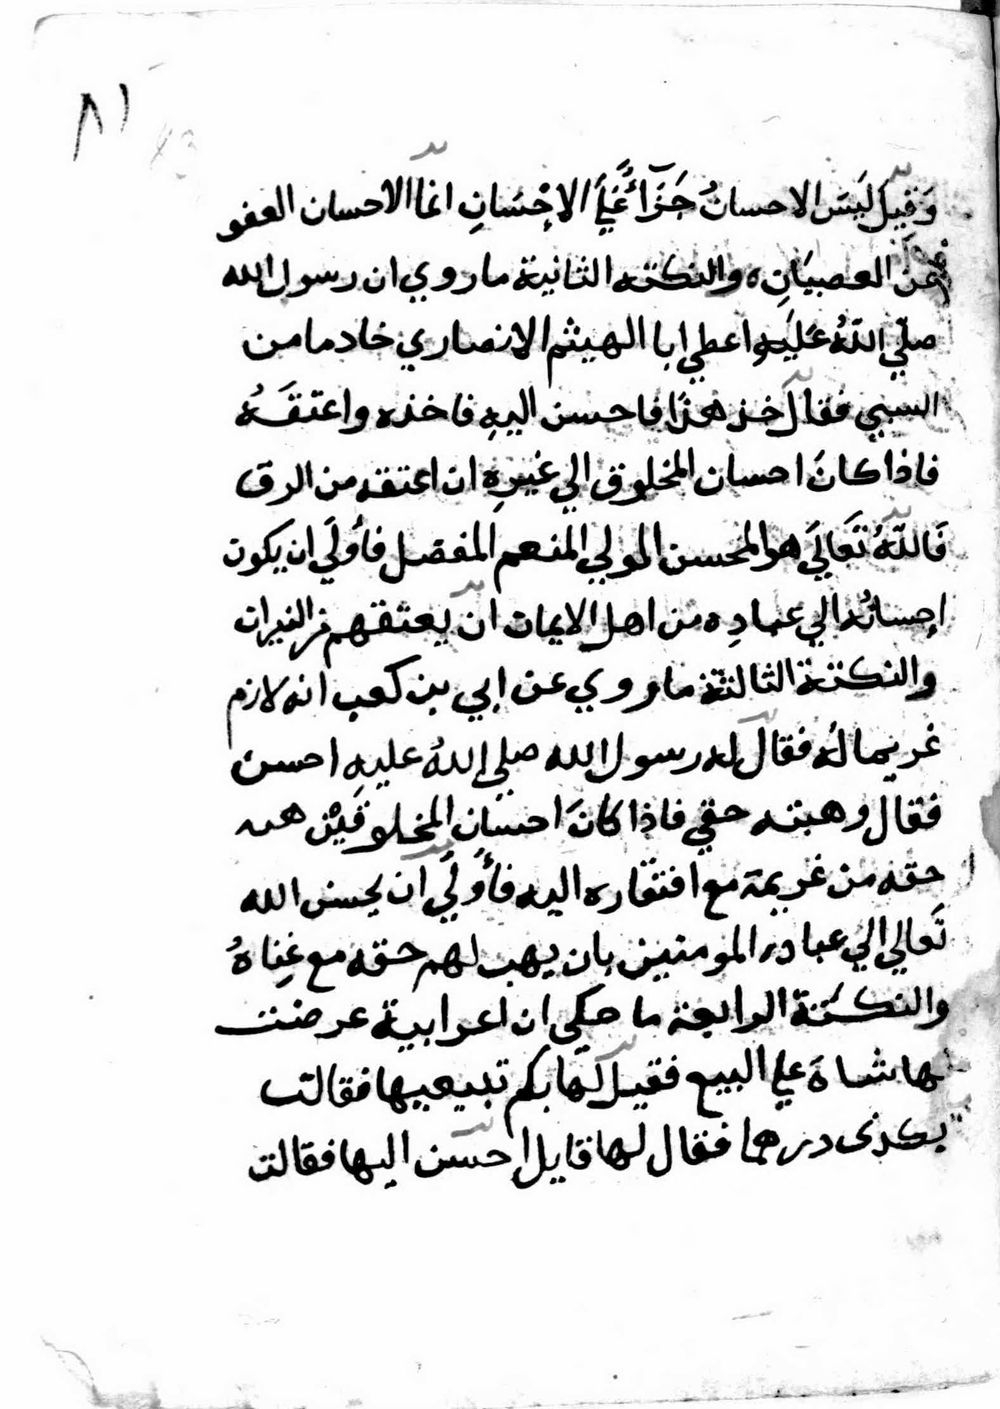 ٨١
وَقِيلَ لَيسَ الاحسانُ جَزَآءً عَلَي الاِحْسَانِ انما الاحسان العفو
عن العصيَانِ ٥ والنكته الثانية ما روي ان رسول الله
صلّي اللّهُ عَليه اعطي ابا الهيثم الانصاري خادما من
السبي فقال خذ هذا فاحسن اليهِ فاخذه واعتقَهُ
فاذا كانَ احسان المخلوق الي غيرِهِ ان اعتقه من الرق
فَاللّهُ تَعَاليَ هو المحسن المولي المنعم المفضل فأولَي ان يكون
اِحسانُه الي عبادِه من اهل الايمان ان يعتقهم من النيران
والنكتة الثالثة ما روي عن ابي بن كعب انه لازم
غريما لهُ فقال له رسول الله صلي اللهُ عليهِ احسن
فقال وهبته حقي فاذا كانَ احسان المخلوقين هبه
حقه من غريمة مع افتقاره اليه فأولَي ان يحسن الله
تَعالي الي عباده المومنين بان يهب لهم حقه مع غِناهُ
والنكتة الرابعة ما حكي ان اعرابية عرضت
لها شاة علي البيع فقيل لها بكم تبيعيها فقالت
بكذى درهما فقال لها قايل احسن اليها فقالت